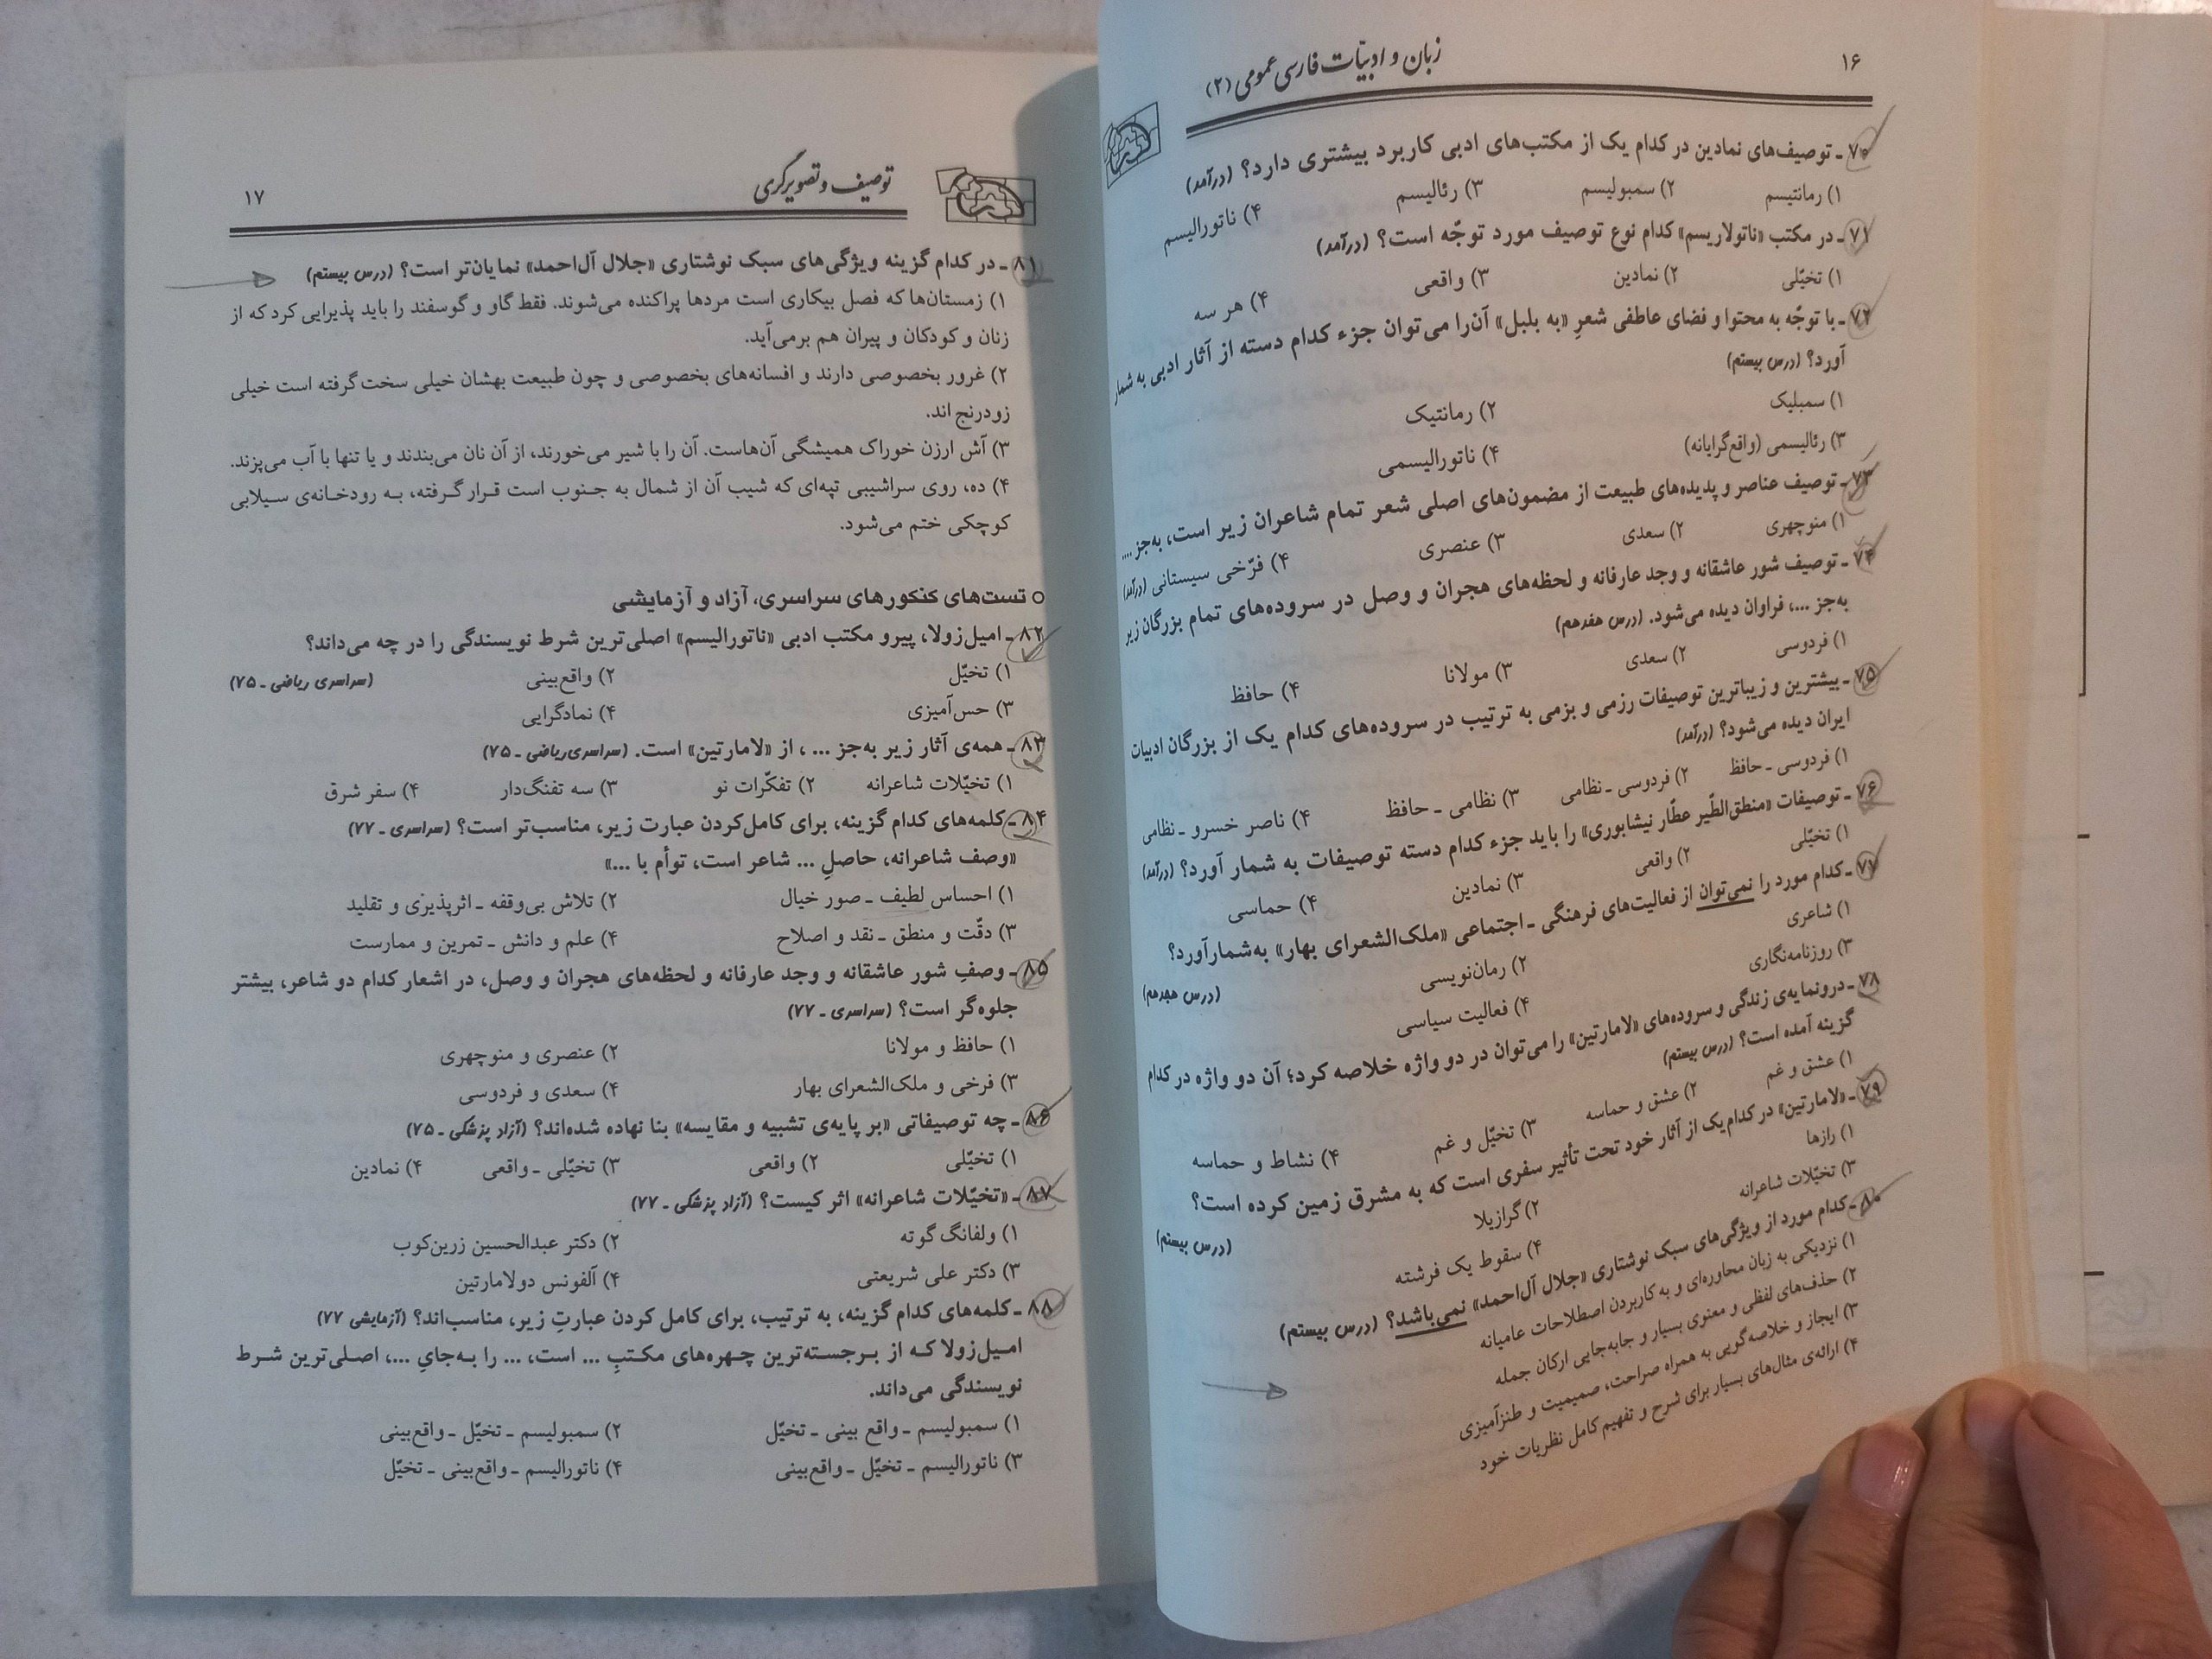 ۱۶
زبان و ادبیّات فارسی عمومی (۲)
۷۰ـ توصیف‌های نمادین در کدام یک از مکتب‌های ادبی کاربرد بیشتری دارد؟ (درآمد)
۱) رمانتیسم ۲) سمبولیسم ۳) رئالیسم ۴) ناتورالیسم
۷۱ـ در مکتب «ناتولاریسم» کدام نوع توصیف مورد توجّه است؟ (درآمد)
۱) تخیّلی ۲) نمادین ۳) واقعی ۴) هر سه
۷۲ـ با توجّه به محتوا و فضای عاطفی شعرِ «به بلبل» آن‌را می‌توان جزء کدام دسته از آثار ادبی به شمار
آورد؟ (درس بیستم)
۱) سمبلیک ۲) رمانتیک
۳) رئالیسمی (واقع‌گرایانه) ۴) ناتورالیسمی
۷۳ـ توصیف عناصر و پدیده‌های طبیعت از مضمون‌های اصلی شعر تمام شاعران زیر است، به‌جز ....
۱) منوچهری ۲) سعدی ۳) عنصری ۴) فرّخی سیستانی (درآمد)
۷۴ـ توصیف شور عاشقانه و وجد عارفانه و لحظه‌های هجران و وصل در سروده‌های تمام بزرگان زیر
به‌جز ...، فراوان دیده می‌شود. (درس هفدهم)
۱) فردوسی ۲) سعدی ۳) مولانا ۴) حافظ
۷۵ـ بیشترین و زیباترین توصیفات رزمی و بزمی به ترتیب در سروده‌های کدام یک از بزرگان ادبیات
ایران دیده می‌شود؟ (درآمد)
۱) فردوسی ـ حافظ ۲) فردوسی ـ نظامی ۳) نظامی ـ حافظ ۴) ناصر خسرو ـ نظامی
۷۶ـ توصیفات «منطق‌الطّیر عطّار نیشابوری» را باید جزء کدام دسته توصیفات به شمار آورد؟ (درآمد)
۱) تخیّلی ۲) واقعی ۳) نمادین ۴) حماسی
۷۷ـ کدام مورد را نمی‌توان از فعالیت‌های فرهنگی ـ اجتماعی «ملک‌الشعرای بهار» به‌شمارآورد؟
۱) شاعری ۲) رمان‌نویسی (درس هجدهم)
۳) روزنامه‌نگاری ۴) فعالیت سیاسی
۷۸ـ درونمایه‌ی زندگی و سروده‌های «لامارتین» را می‌توان در دو واژه خلاصه کرد؛ آن دو واژه در کدام
گزینه آمده است؟ (درس بیستم)
۱) عشق و غم ۲) عشق و حماسه ۳) تخیّل و غم ۴) نشاط و حماسه
۷۹ـ «لامارتین» در کدام‌یک از آثار خود تحت تأثیر سفری است که به مشرق زمین کرده است؟
۱) رازها ۲) گرازیلا (درس بیستم)
۳) تخیّلات شاعرانه ۴) سقوط یک فرشته
۸۰ـ کدام مورد از ویژگی‌های سبک نوشتاری «جلال آل‌احمد» نمی‌باشد؟ (درس بیستم)
۱) نزدیکی به زبان محاوره‌ای و به کاربردن اصطلاحات عامیانه
۲) حذف‌های لفظی و معنوی بسیار و جابه‌جایی ارکان جمله
۳) ایجاز و خلاصه‌گویی به همراه صراحت، صمیمیت و طنزآمیزی
۴) ارائه‌ی مثال‌های بسیار برای شرح و تفهیم کامل نظریات خود
توصیف و تصویرگری
۱۷
۸۱ـ در کدام گزینه ویژگی‌های سبک نوشتاری «جلال آل‌احمد» نمایان‌تر است؟ (درس بیستم)
۱) زمستان‌ها که فصل بیکاری است مردها پراکنده می‌شوند. فقط گاو و گوسفند را باید پذیرایی کرد که از
زنان و کودکان و پیران هم برمی‌آید.
۲) غرور بخصوصی دارند و افسانه‌های بخصوصی و چون طبیعت بهشان خیلی سخت گرفته است خیلی
زودرنج اند.
۳) آش ارزن خوراک همیشگی آن‌هاست. آن را با شیر می‌خورند، از آن نان می‌بندند و یا تنها با آب می‌پزند.
۴) ده، روی سراشیبی تپه‌ای که شیب آن از شمال به جنوب است قرار گرفته، به رودخانه‌ی سیلابی
کوچکی ختم می‌شود.
○ تست‌های کنکورهای سراسری، آزاد و آزمایشی
۸۲ـ امیل‌زولا، پیرو مکتب ادبی «ناتورالیسم» اصلی‌ترین شرط نویسندگی را در چه می‌داند؟
۱) تخیّل ۲) واقع‌بینی (سراسری ریاضی ـ ۷۵)
۳) حس‌آمیزی ۴) نمادگرایی
۸۳ـ همه‌ی آثار زیر به‌جز ... ، از «لامارتین» است. (سراسری‌ریاضی ـ ۷۵)
۱) تخیّلات شاعرانه ۲) تفکّرات نو ۳) سه تفنگ‌دار ۴) سفر شرق
۸۴ـ کلمه‌های کدام گزینه، برای کامل‌کردن عبارت زیر، مناسب‌تر است؟ (سراسری ـ ۷۷)
«وصف شاعرانه، حاصلِ ... شاعر است، توأم با ...»
۱) احساس لطیف ـ صور خیال ۲) تلاش بی‌وقفه ـ اثرپذیزی و تقلید
۳) دقّت و منطق ـ نقد و اصلاح ۴) علم و دانش ـ تمرین و ممارست
۸۵ـ وصفِ شور عاشقانه و وجد عارفانه و لحظه‌های هجران و وصل، در اشعار کدام دو شاعر، بیشتر
جلوه‌گر است؟ (سراسری ـ ۷۷)
۱) حافظ و مولانا ۲) عنصری و منوچهری
۳) فرخی و ملک‌الشعرای بهار ۴) سعدی و فردوسی
۸۶ـ چه توصیفاتی «بر پایه‌ی تشبیه و مقایسه» بنا نهاده شده‌اند؟ (آزاد پزشکی ـ ۷۵)
۱) تخیّلی ۲) واقعی ۳) تخیّلی ـ واقعی ۴) نمادین
۸۷ـ «تخیّلات شاعرانه» اثر کیست؟ (آزاد پزشکی ـ ۷۷)
۱) ولفانگ گوته ۲) دکتر عبدالحسین زرین‌کوب
۳) دکتر علی شریعتی ۴) آلفونس دولامارتین
۸۸ـ کلمه‌های کدام گزینه، به ترتیب، برای کامل کردن عبارتِ زیر، مناسب‌اند؟ (آزمایشی ۷۷)
امیل‌زولا که از برجسته‌ترین چهره‌های مکتبِ ... است، ... را به‌جایِ ...، اصلی‌ترین شرط
نویسندگی می‌داند.
۱) سمبولیسم ـ واقع بینی ـ تخیّل ۲) سمبولیسم ـ تخیّل ـ واقع‌بینی
۳) ناتورالیسم ـ تخیّل ـ واقع‌بینی ۴) ناتورالیسم ـ واقع‌بینی ـ تخیّل